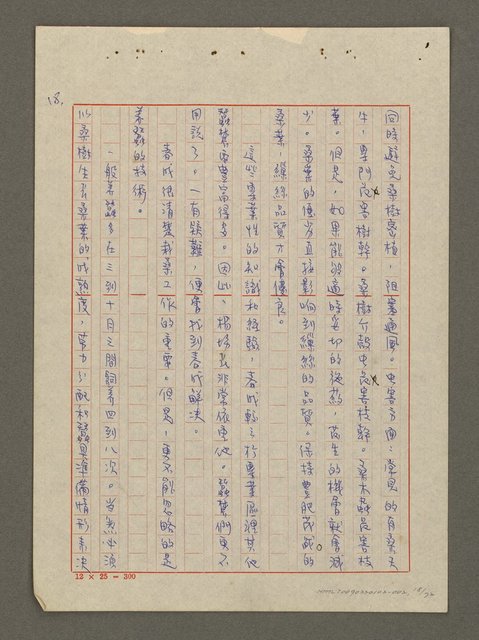 18.
同時避免桑樹密植,阻塞通風。虫害方面:常見的有桑天
牛,專門食害樹幹。桑樹介殼虫食害枝幹。桑木蟲食害枝
葉。但是,如果能夠適時妥切的後葯,茲生的機會就會減
少。桑葉的優劣直接影响到繅絲的品質。保持豐肥茂盛的
桑葉,繅絲品質才會優良。
這些專業性的知識和經驗,春成較之於專業區裡其他
蠶農要豐富得多。因此,楊場長非常依重他。蠶農們更不
用說了。一有疑難,便會找到春成解決。
春成很清楚栽桑工作的重要。但是,更不能忽略的是
養蠶的技術。
一般養蠶多在三到十月之間飼養四到八次。當然必須
以桑樹生長桑葉的成熟度,勞力分配和蠶具準備情形來決
12 × 25 = 300